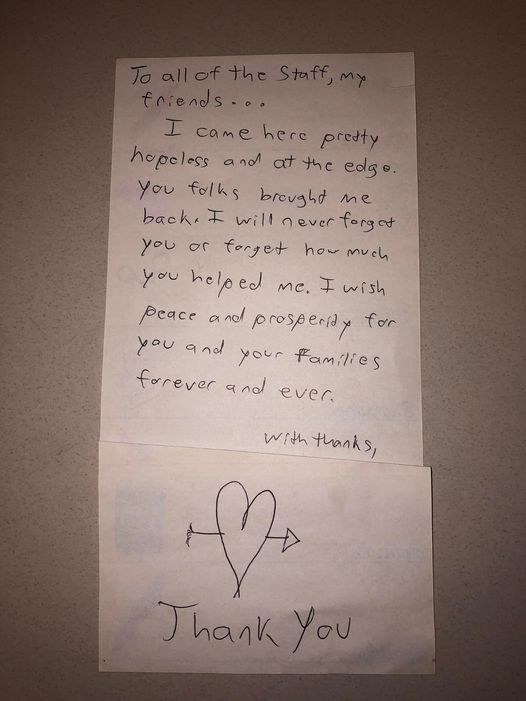 To all of the Staff, my
friends...
I came here pretty
hopeless and at the edge.
you folks brought me
back. I will never forget
you or forget how much
you helped me. I wish
peace and prosperity for
you and your Families
forever and ever.
with thanks,
Thank You